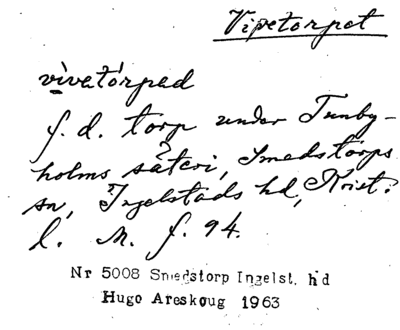 Vipetorpet
vivetòrped
f. d. torp under Tunby-
holms säteri, Smedstorps
sn, Ingelstads hd, Krist.
l. M. f. 94.
Nr 5008 Smedstorp Ingelst. hd
Hugo Areskoug 1963